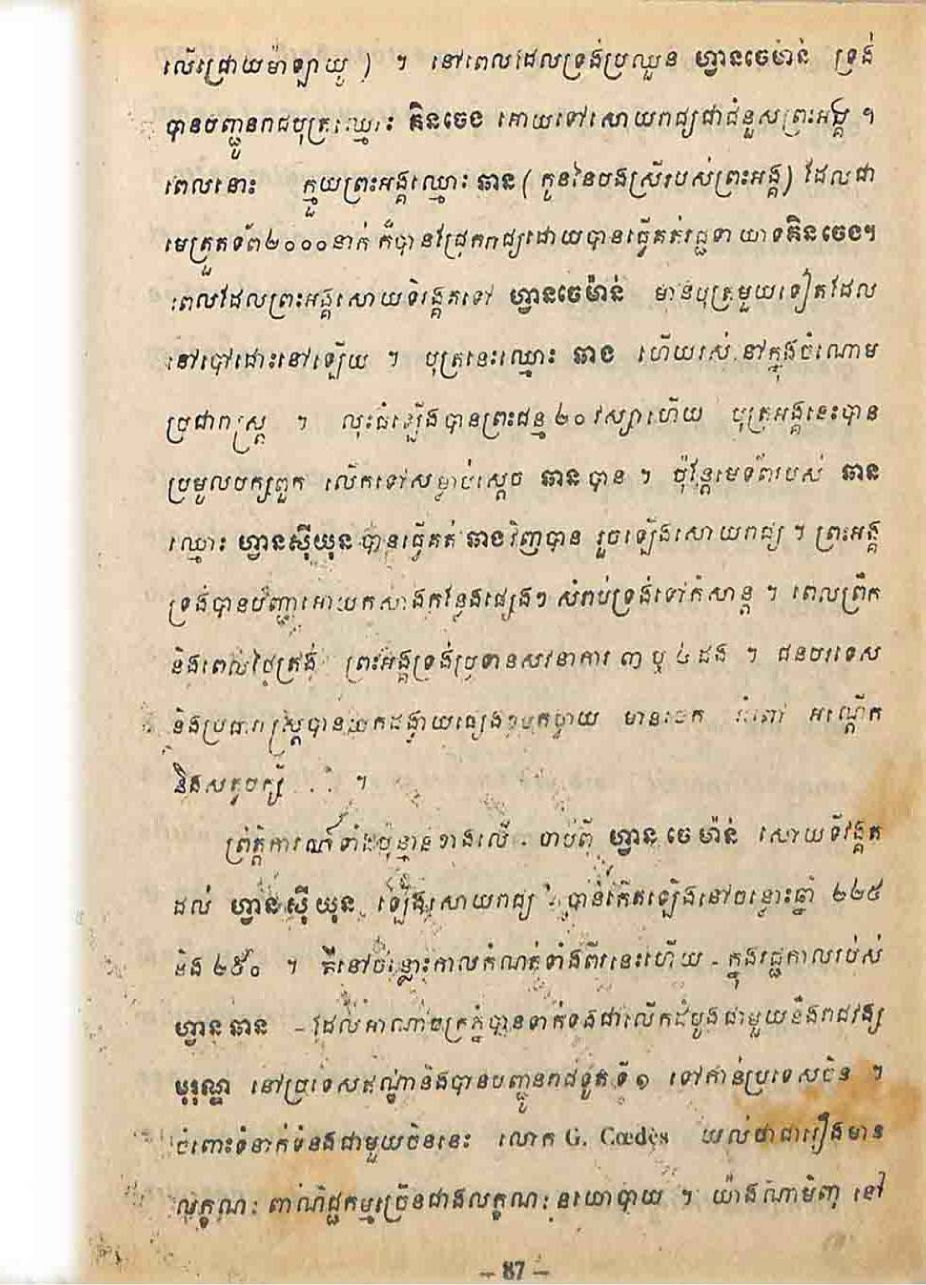 លើជ្រោយម៉ាឡាយូ ) ។ នៅពេលដែលទ្រង់ប្រឈួន ហ្វានចេម៉ាន់ ទ្រង់
បានបញ្ជូនរាជបុត្រឈ្មោះ គិនចេង អោយទៅសោយរាជ្យជាជំនួសព្រះអង្គ ។
ពេលនោះ ក្មួយព្រះអង្គឈ្មោះ ឆាន ( កូននៃបងស្រីរបស់ព្រះអង្គ) ដែលជា
មេត្រួតទ័ព២០០០នាក់ ក៏បានជ្រែករាជ្យដោយបានធ្វើគត់រជ្ជទាយាទគិនចេង។
ពេលដែលព្រះអង្គសោយទិវង្គតទៅ ហ្វានចេម៉ាន់ មានបុត្រមួយទៀតដែល
នៅបៅដោះនៅឡើយ ។ បុត្រនេះឈ្មោះ ឆាង ហើយរស់នៅក្នុងចំណោម
ប្រជារាស្ត្រ ។ លុះធំឡើងបានព្រះជន្ម ២០ វស្សាហើយ បុត្រអង្គនេះបាន
ប្រមូលបក្សពួក លើកទៅសម្លាប់ស្តេច ឆាន បាន ។ ប៉ុន្តែមេទ័ពរបស់ ឆាន
ឈ្មោះ ហ្វានស៊ីយុន បានធ្វើគត់ ឆាង វិញបាន រួចឡើងសោយរាជ្យ ។ ព្រះអង្គ
ទ្រង់បានបញ្ជាអោយកសាងកន្លែងផ្សេងៗ សំរាប់ទ្រង់ទៅកំសាន្ត ។ ពេលព្រឹក
និងពេលថ្ងៃត្រង់ ព្រះអង្គទ្រង់ប្រទានសវនាការ ៣ ឬ ៤ ដង ។ ជនបរទេស
និងប្រជារាស្ត្របានយកដង្វាយផ្សេងៗមកថ្វាយ មានចេក អំពៅ អណ្តើក
និងសត្វបក្សី . . . ។
ព្រឹត្តិការណ៍ទាំងប៉ុន្មានខាងលើ - ចាប់ពី ហ្វាន ចេ ម៉ាន់ សោយទិវង្គត
ដល់ ហ្វាន ស៊ី យុន ឡើងសោយរាជ្យ - បានកើតឡើងនៅចន្លោះឆ្នាំ ២២៥
និង ២៥០ ។ គឺនៅចន្លោះកាលកំណត់ទាំងពីរនេះហើយ - ក្នុងរជ្ជកាលរបស់
ហ្វាន ឆាន - ដែលអាណាចក្រភ្នំបានទាក់ទងជាលើកដំបូងជាមួយនឹងរាជវង្ស
មុរុណ្ឌ នៅប្រទេសឥណ្ឌានិងបានបញ្ជូនរាជទូតទី១ ទៅកាន់ប្រទេសចិន ។
ចំពោះទំនាក់ទំនងជាមួយចិននេះ លោក G. Cœdès យល់ថាជារឿងមាន
លក្ខណៈ ពាណិជ្ជកម្មច្រើនជាងលក្ខណៈ នយោបាយ ។ យ៉ាងណាមិញ នៅ
– 87 –